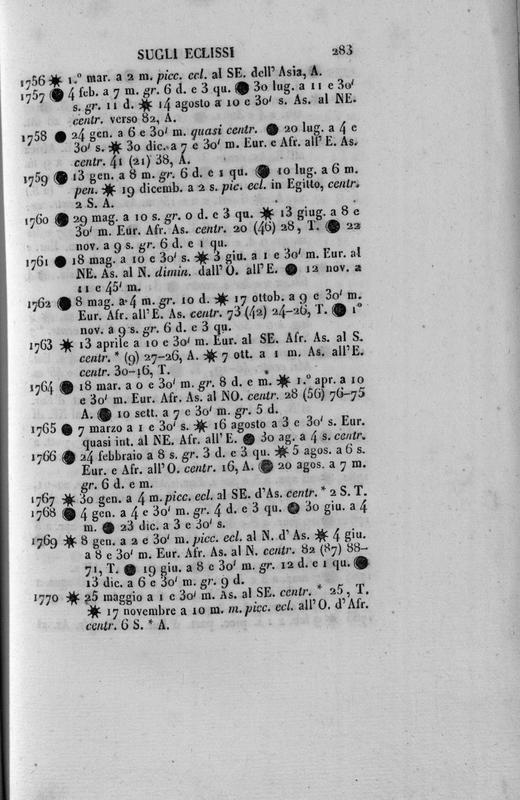 SUGLI ECLISSI 283
1756 ☀ 1.° mar. a 2 m. picc. ecl. al SE. dell' Asia, A.
1757 ● 4 feb. a 7 m. gr. 6 d. e 3 qu. ● 30 lug. a 11 e 30'
s. gr. 11 d. ☀ 14 agosto a 10 e 30' s. As. al NE.
centr. verso 82, A.
1758 ● 24 gen. a 6 e 30' m. quasi centr. ● 20 lug. a 4 e
30' s. ☀ 30 dic. a 7 e 30' m. Eur. e Afr. all' E. As.
centr. 41 (21) 38, A.
1759 ● 13 gen. a 8 m. gr. 6 d. e 1 qu. ● 10 lug. a 6 m.
pen. ☀ 19 dicemb. a 2 s. pic. ecl. in Egitto, centr.
2 S. A.
1760 ● 29 mag. a 10 s. gr. 0 d. e 3 qu. ☀ 13 giug. a 8 e
30' m. Eur. Afr. As. centr. 20 (46) 28, T. ● 22
nov. a 9 s. gr. 6 d. e 1 qu.
1761 ● 18 mag. a 10 e 30' s. ☀ 3 giu. a 1 e 30' m. Eur. al
NE. As. al N. dimin. dall' O. all' E. ● 12 nov. a
11 e 45' m.
1762 ● 8 mag. a 4 m. gr. 10 d. ☀ 17 ottob. a 9 e 30' m.
Eur. Afr. all' E. As. centr. 73 (42) 24-26, T. ● 1°
nov. a 9 s. gr. 6 d. e 3 qu.
1763 ☀ 13 aprile a 10 e 30' m. Eur. al SE. Afr. As. al S.
centr. * (9) 27-26, A. ☀ 7 ott. a 1 m. As. all' E.
centr. 30-16, T.
1764 ● 18 mar. a 0 e 30' m. gr. 8 d. e m. ☀ 1.° apr. a 10
e 30' m. Eur. Afr. As. al NO. centr. 28 (56) 76-75
A. ● 10 sett. a 7 e 30' m. gr. 5 d.
1765 ● 7 marzo a 1 e 30' s. ☀ 16 agosto a 3 e 30' s. Eur.
quasi int. al NE. Afr. all' E. ● 30 ag. a 4 s. centr.
1766 ● 24 febbraio a 8 s. gr. 3 d. e 3 qu. ☀ 5 agos. a 6 s.
Eur. e Afr. all' O. centr. 16, A. ● 20 agos. a 7 m.
gr. 6 d. e m.
1767 ☀ 30 gen. a 4 m. picc. ecl. al SE. d'As. centr. * 2 S. T.
1768 ● 4 gen. a 4 e 30' m. gr. 4 d. e 3 qu. ● 30 giu. a 4
m. ● 23 dic. a 3 e 30' s.
1769 ☀ 8 gen. a 2 e 30' m. picc. ecl. al N. d' As. ☀ 4 giu.
a 8 e 30' m. Eur. Afr. As. al N. centr. 82 (87) 88-
71, T. ● 19 giu. a 8 e 30' m. gr. 12 d. e 1 qu. ●
13 dic. a 6 e 30' m. gr. 9 d.
1770 ☀ 25 maggio a 1 e 30' m. As. al SE. centr. * 25, T.
☀ 17 novembre a 10 m. m. picc. ecl. all' O. d' Afr.
centr. 6 S. * A.